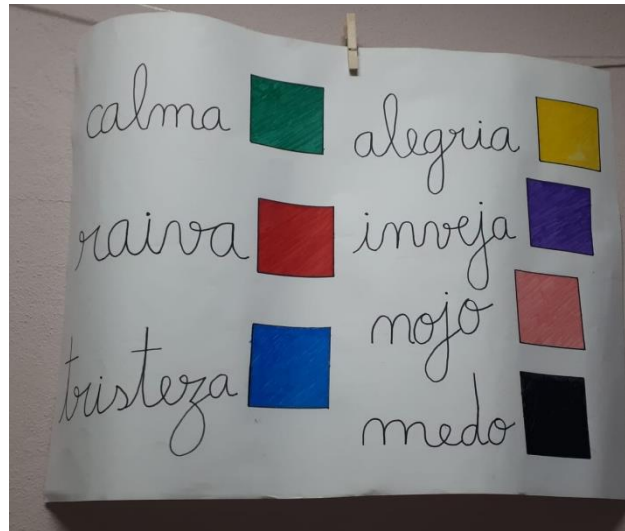 calma
raiva
tristeza
alegria
inveja
nojo
medo